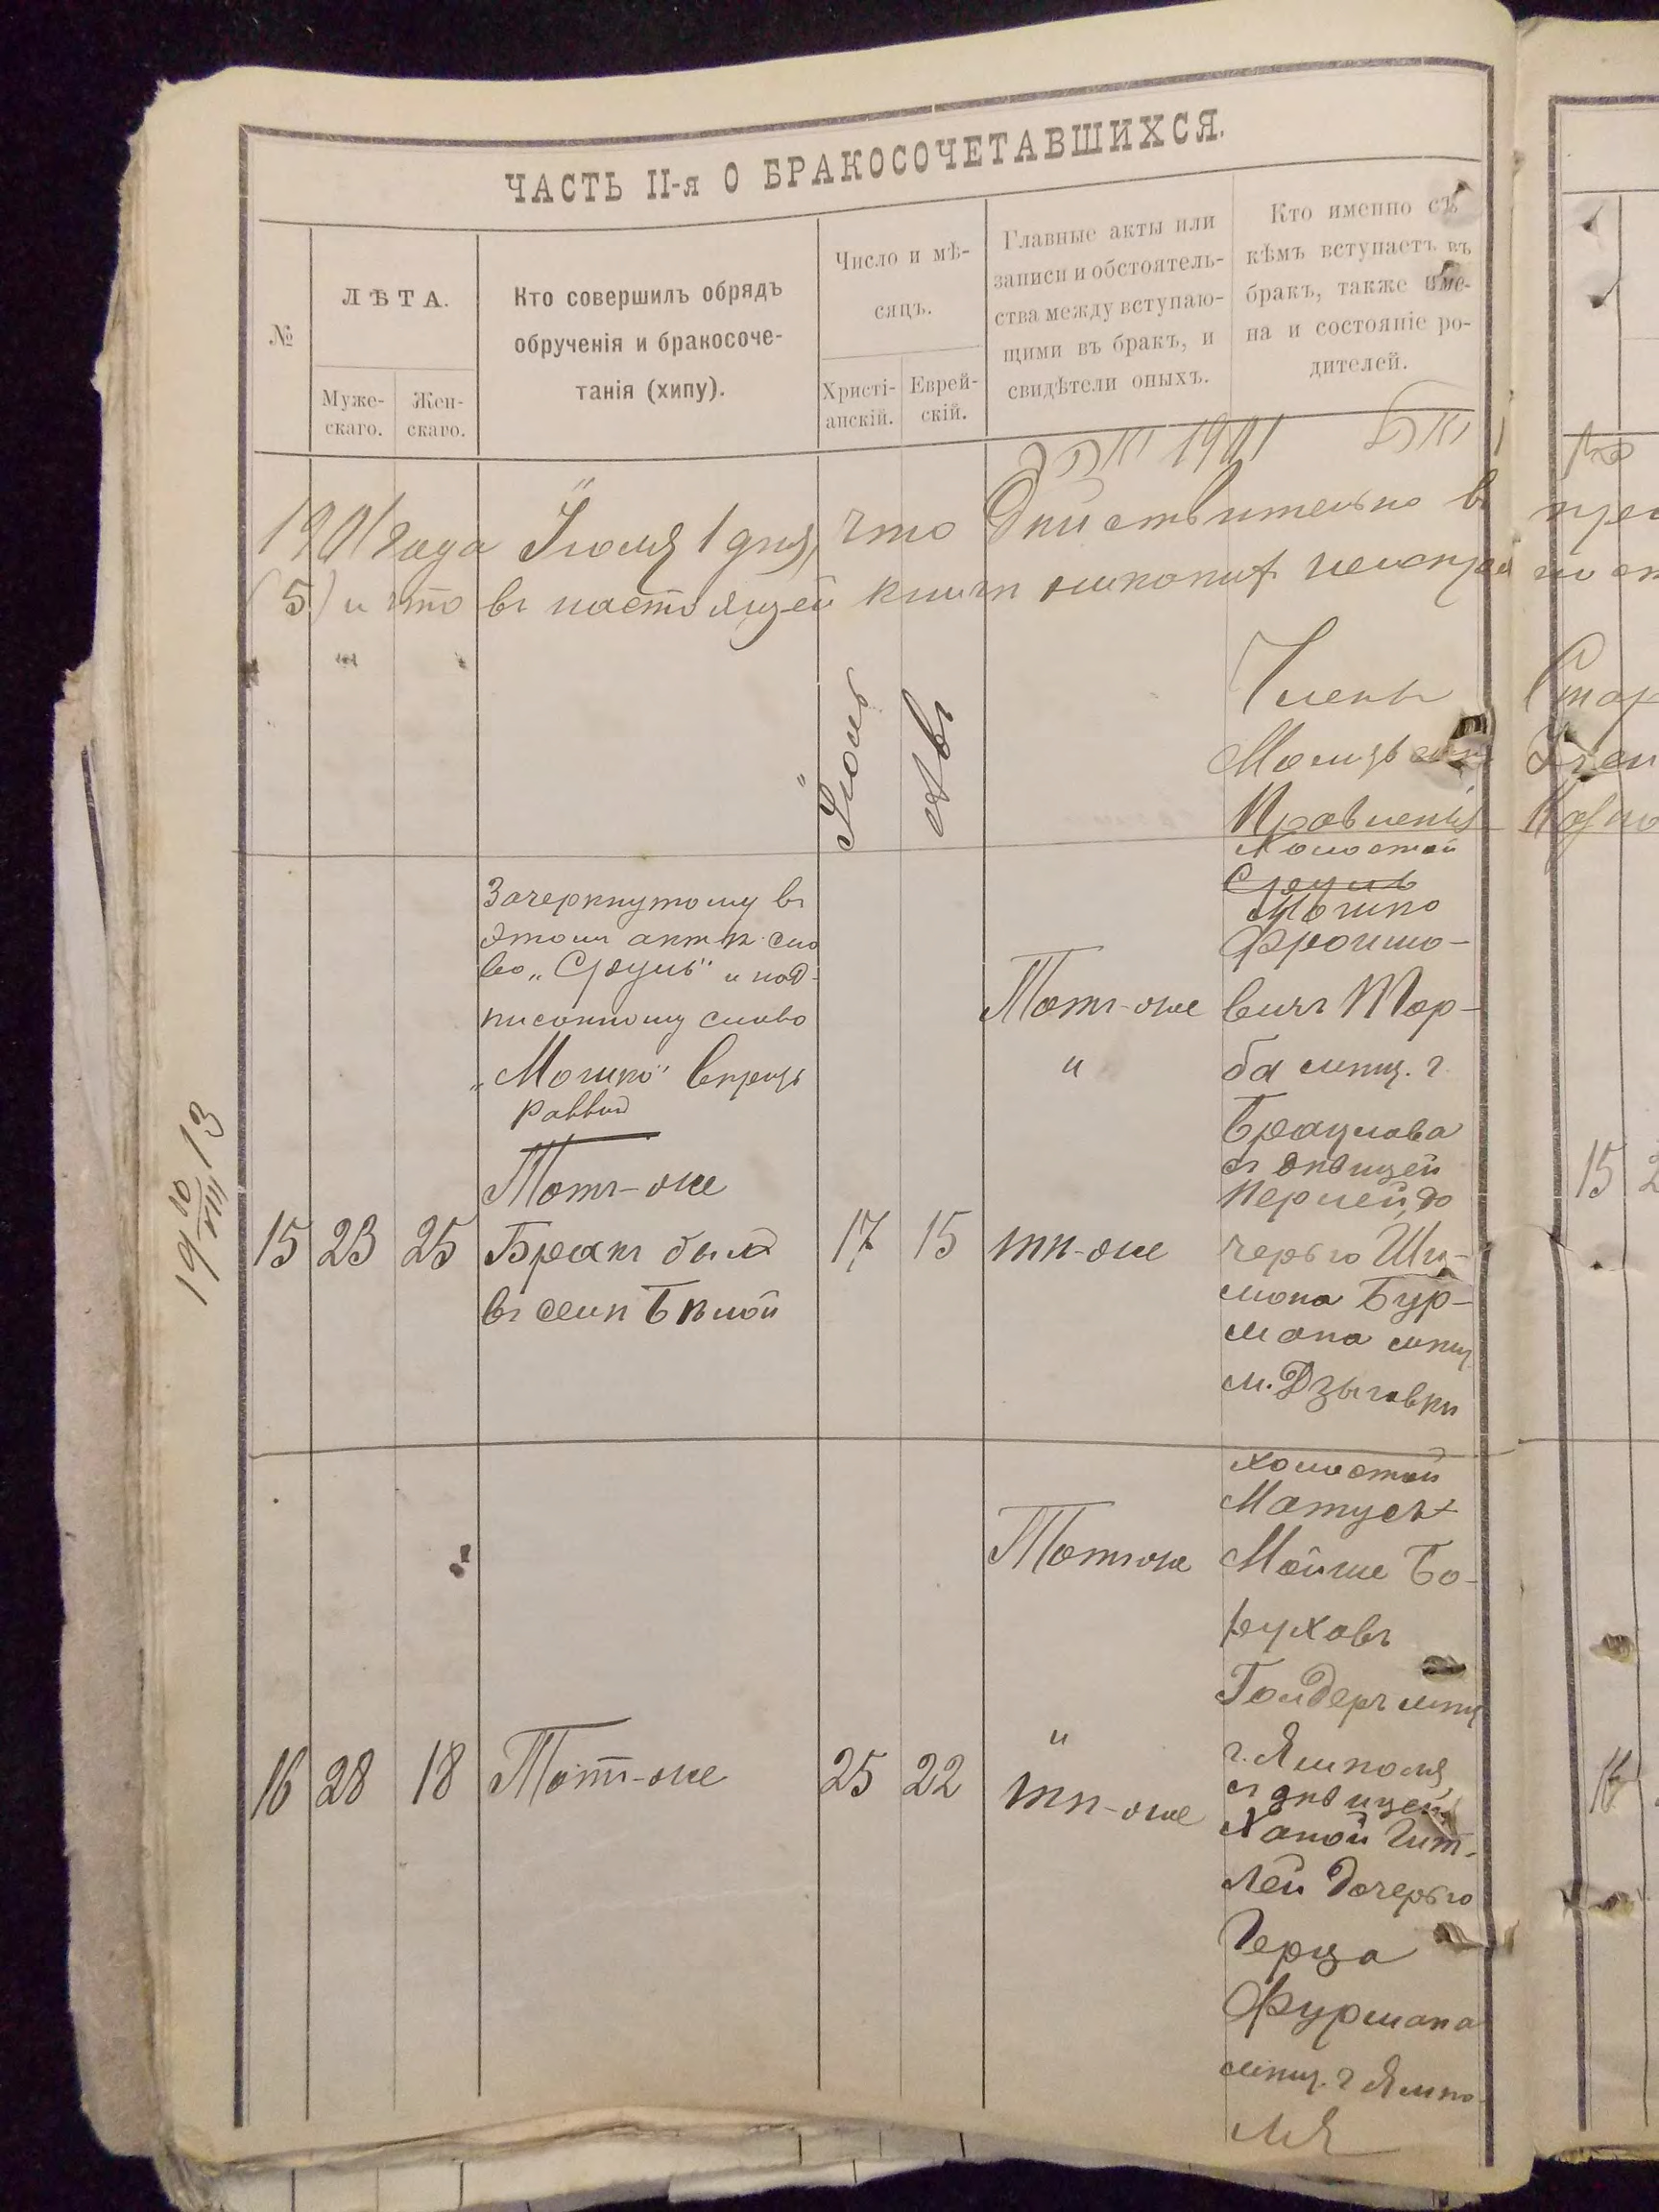 ЧАСТЬ II-я О БРАКОСОЧЕТАВШИХСЯ.
№
ЛѢТА.
Муже-
скаго.
Жен-
скаго.
Кто совершилъ обрядъ
обрученія и бракосоче-
танія (хипу).
Число и мѣ-
сяцъ.
Христі-
анскій.
Еврей-
скій.
Главные акты или
записи и обстоятель-
ства между вступаю-
щими въ бракъ, и
свидѣтели оныхъ.
Кто именно съ
кѣмъ вступаетъ въ
бракъ, также име-
на и состояніе ро-
дителей.
1901
1901 года Іюля 1 дня, что Дѣйствительно въ
(5) и что въ настоящей книгѣ
Іюль
Авъ
Члены
Правленія
Зачеркнутому въ
этомъ актѣ сло
во „Сруль" и над-
писанному слово
„Мошко" вѣрить
Раввинъ
Тотъ-же
15 23 25 Бракъ былъ 17 15
въ селѣ Бѣлой
Тотъ-же
и
тѣ-же
Холостой
Сруль
Мошко
Фроимо-
вичъ Тор-
ба мѣщ. г.
Брацлава
съ дѣвицей
Перлей, до
черью Ши-
мона Бур-
мана мѣщ
м. Дзыговки
19 10/VIII 13
16 28 18 Тотъ-же 25 22
Тотъ же
и
тѣ-же
холостой
Матусъ
Мойше Бо-
руховъ
Гольдеръ мѣщ
г. Ямполя,
съ дѣвицей
Ханой Гит-
лей дочерью
Герша
Фурмана
мѣщ. г Ямпо
ля
15
16